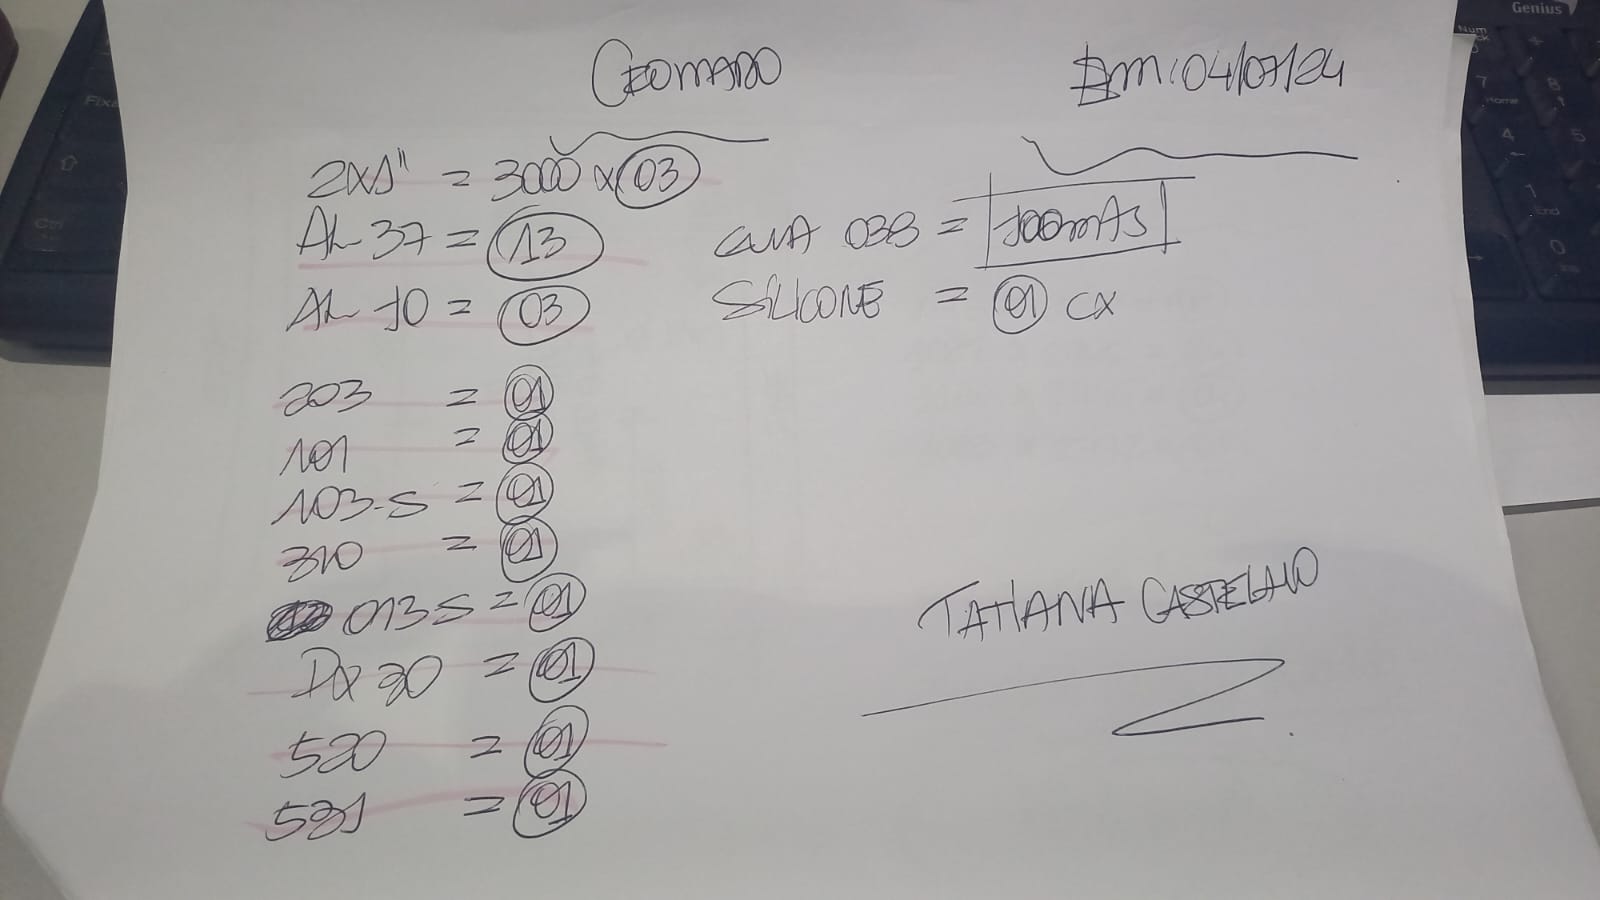 CROMADO
Em: 04/07/24
2x1" = 3000 x 03
AL 37 = 13
AL 10 = 03
203 = 01
101 = 01
103-S = 01
310 = 01
013 S = 01
DX 30 = 01
520 = 01
531 = 01
GUIA 038 = 100mAS
SILICONE = 01 CX
TATIANA CASTELANO
Genius
Num
7
Home
8
4
5
1
End
0
Ctrl